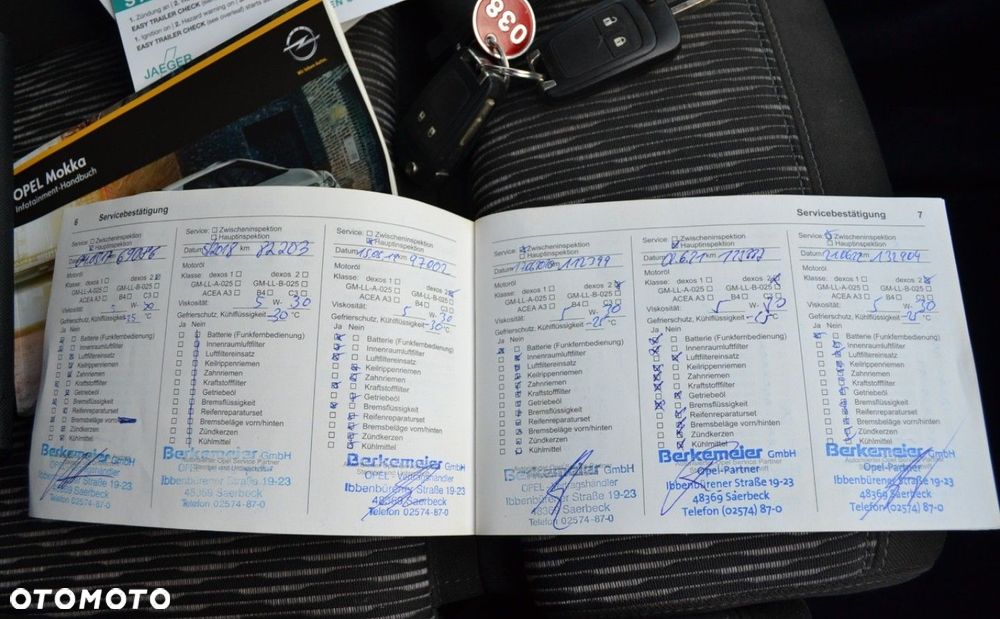 1. Zündung an
1. Ignition on | 2. Hazard warning on
EASY TRAILER CHECK (see overleaf) starts
JAEGER
038
Wir leben Autos.
OPEL Mokka
Infotainment-Handbuch
6 Servicebestätigung
Service: Zwischeninspektion
Hauptinspektion
Datum km
Motoröl
Klasse: dexos 1 dexos 2
GM-LL-A-025 GM-LL-B-025
ACEA A3 B4 C3
Viskosität: W-
Gefrierschutz, Kühlflüssigkeit °C
Ja Nein
Batterie (Funkfernbedienung)
Innenraumluftfilter
Luftfiltereinsatz
Keilrippenriemen
Zahnriemen
Kraftstofffilter
Getriebeöl
Bremsflüssigkeit
Reifenreparaturset
Bremsbeläge vorn
Zündkerzen
Kühlmittel
Berkemeier GmbH
Ibbenbürener Straße 19-23
48369 Saerbeck
Telefon 02574-87-0
Service: Zwischeninspektion
Hauptinspektion
Datum 5/2018 km 82203
Motoröl
Klasse: dexos 1 dexos 2
GM-LL-A-025 GM-LL-B-025
ACEA A3 B4 C3
Viskosität: 5 W- 30
Gefrierschutz, Kühlflüssigkeit -30 °C
Ja Nein
Batterie (Funkfernbedienung)
Innenraumluftfilter
Luftfiltereinsatz
Keilrippenriemen
Zahnriemen
Kraftstofffilter
Getriebeöl
Bremsflüssigkeit
Reifenreparaturset
Bremsbeläge vorn/hinten
Zündkerzen
Kühlmittel
Berkemeier GmbH
Ibbenbürener Straße 19-23
48369 Saerbeck
Telefon 02574-87-0
Service: Zwischeninspektion
Hauptinspektion
Datum km 97002
Motoröl
Klasse: dexos 1 dexos 2
GM-LL-A-025 GM-LL-B-025
ACEA A3 B4 C3
Viskosität: 5 W- 30
Gefrierschutz, Kühlflüssigkeit -30 °C
Ja Nein
Batterie (Funkfernbedienung)
Innenraumluftfilter
Luftfiltereinsatz
Keilrippenriemen
Zahnriemen
Kraftstofffilter
Getriebeöl
Bremsflüssigkeit
Reifenreparaturset
Bremsbeläge vorn/hinten
Zündkerzen
Kühlmittel
Berkemeier GmbH
Ibbenbürener Straße 19-23
48369 Saerbeck
Telefon 02574-87-0
Servicebestätigung 7
Service: Zwischeninspektion
Hauptinspektion
Datum km
Motoröl
Klasse: dexos 1 dexos 2
GM-LL-A-025 GM-LL-B-025
ACEA A3 B4 C3
Viskosität: W- 30
Gefrierschutz, Kühlflüssigkeit °C
Ja Nein
Batterie (Funkfernbedienung)
Innenraumluftfilter
Luftfiltereinsatz
Keilrippenriemen
Zahnriemen
Kraftstofffilter
Getriebeöl
Bremsflüssigkeit
Reifenreparaturset
Bremsbeläge vorn/hinten
Zündkerzen
Kühlmittel
Berkemeier GmbH
Ibbenbürener Straße 19-23
48369 Saerbeck
Telefon 02574-87-0
Service: Zwischeninspektion
Hauptinspektion
Datum km
Motoröl
Klasse: dexos 1 dexos 2
GM-LL-A-025 GM-LL-B-025
ACEA A3 B4 C3
Viskosität: W-
Gefrierschutz, Kühlflüssigkeit °C
Ja Nein
Batterie (Funkfernbedienung)
Innenraumluftfilter
Luftfiltereinsatz
Keilrippenriemen
Zahnriemen
Kraftstofffilter
Getriebeöl
Bremsflüssigkeit
Reifenreparaturset
Bremsbeläge vorn/hinten
Zündkerzen
Kühlmittel
Berkemeier GmbH
Opel-Partner
Ibbenbürener Straße 19-23
48369 Saerbeck
Telefon (02574) 87-0
Service: Zwischeninspektion
Hauptinspektion
Datum km 132904
Motoröl
Klasse: dexos 1 dexos 2
GM-LL-A-025 GM-LL-B-025
ACEA A3 B4 C3
Viskosität: W- 30
Gefrierschutz, Kühlflüssigkeit °C
Ja Nein
Batterie (Funkfernbedienung)
Innenraumluftfilter
Luftfiltereinsatz
Keilrippenriemen
Zahnriemen
Kraftstofffilter
Getriebeöl
Bremsflüssigkeit
Reifenreparaturset
Bremsbeläge vorn/hinten
Zündkerzen
Kühlmittel
Berkemeier GmbH
Opel-Partner
Ibbenbürener Straße 19-23
48369 Saerbeck
Telefon (02574) 87-0
OTOMOTO